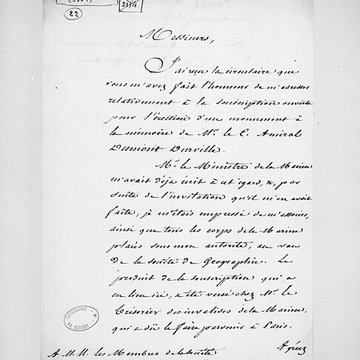 22
Messieurs,
J'ai reçu la circulaire que
vous m'avez fait l'honneur de m'adresser
relativement à la souscription ouverte
pour l'érection d'un monument à
la mémoire de Mr. le C. Amiral
Dumont Durville.
Mr. le Ministre de la Marine
m'avait déjà écrit à cet égard, &, par
suite de l'invitation qu'il m'en avait
faite, je m'étais empressé de m'associer,
ainsi que tous les corps de la Marine
placés sous mon autorité, au vœu
de la Société de Géographie. Le
produit de la souscription qui a
eu lieu ici, a été versé chez Mr. le
Trésorier des invalides de la Marine,
qui a dû le faire parvenir à Paris.
Agréez
A M.M. les Membres de la Société